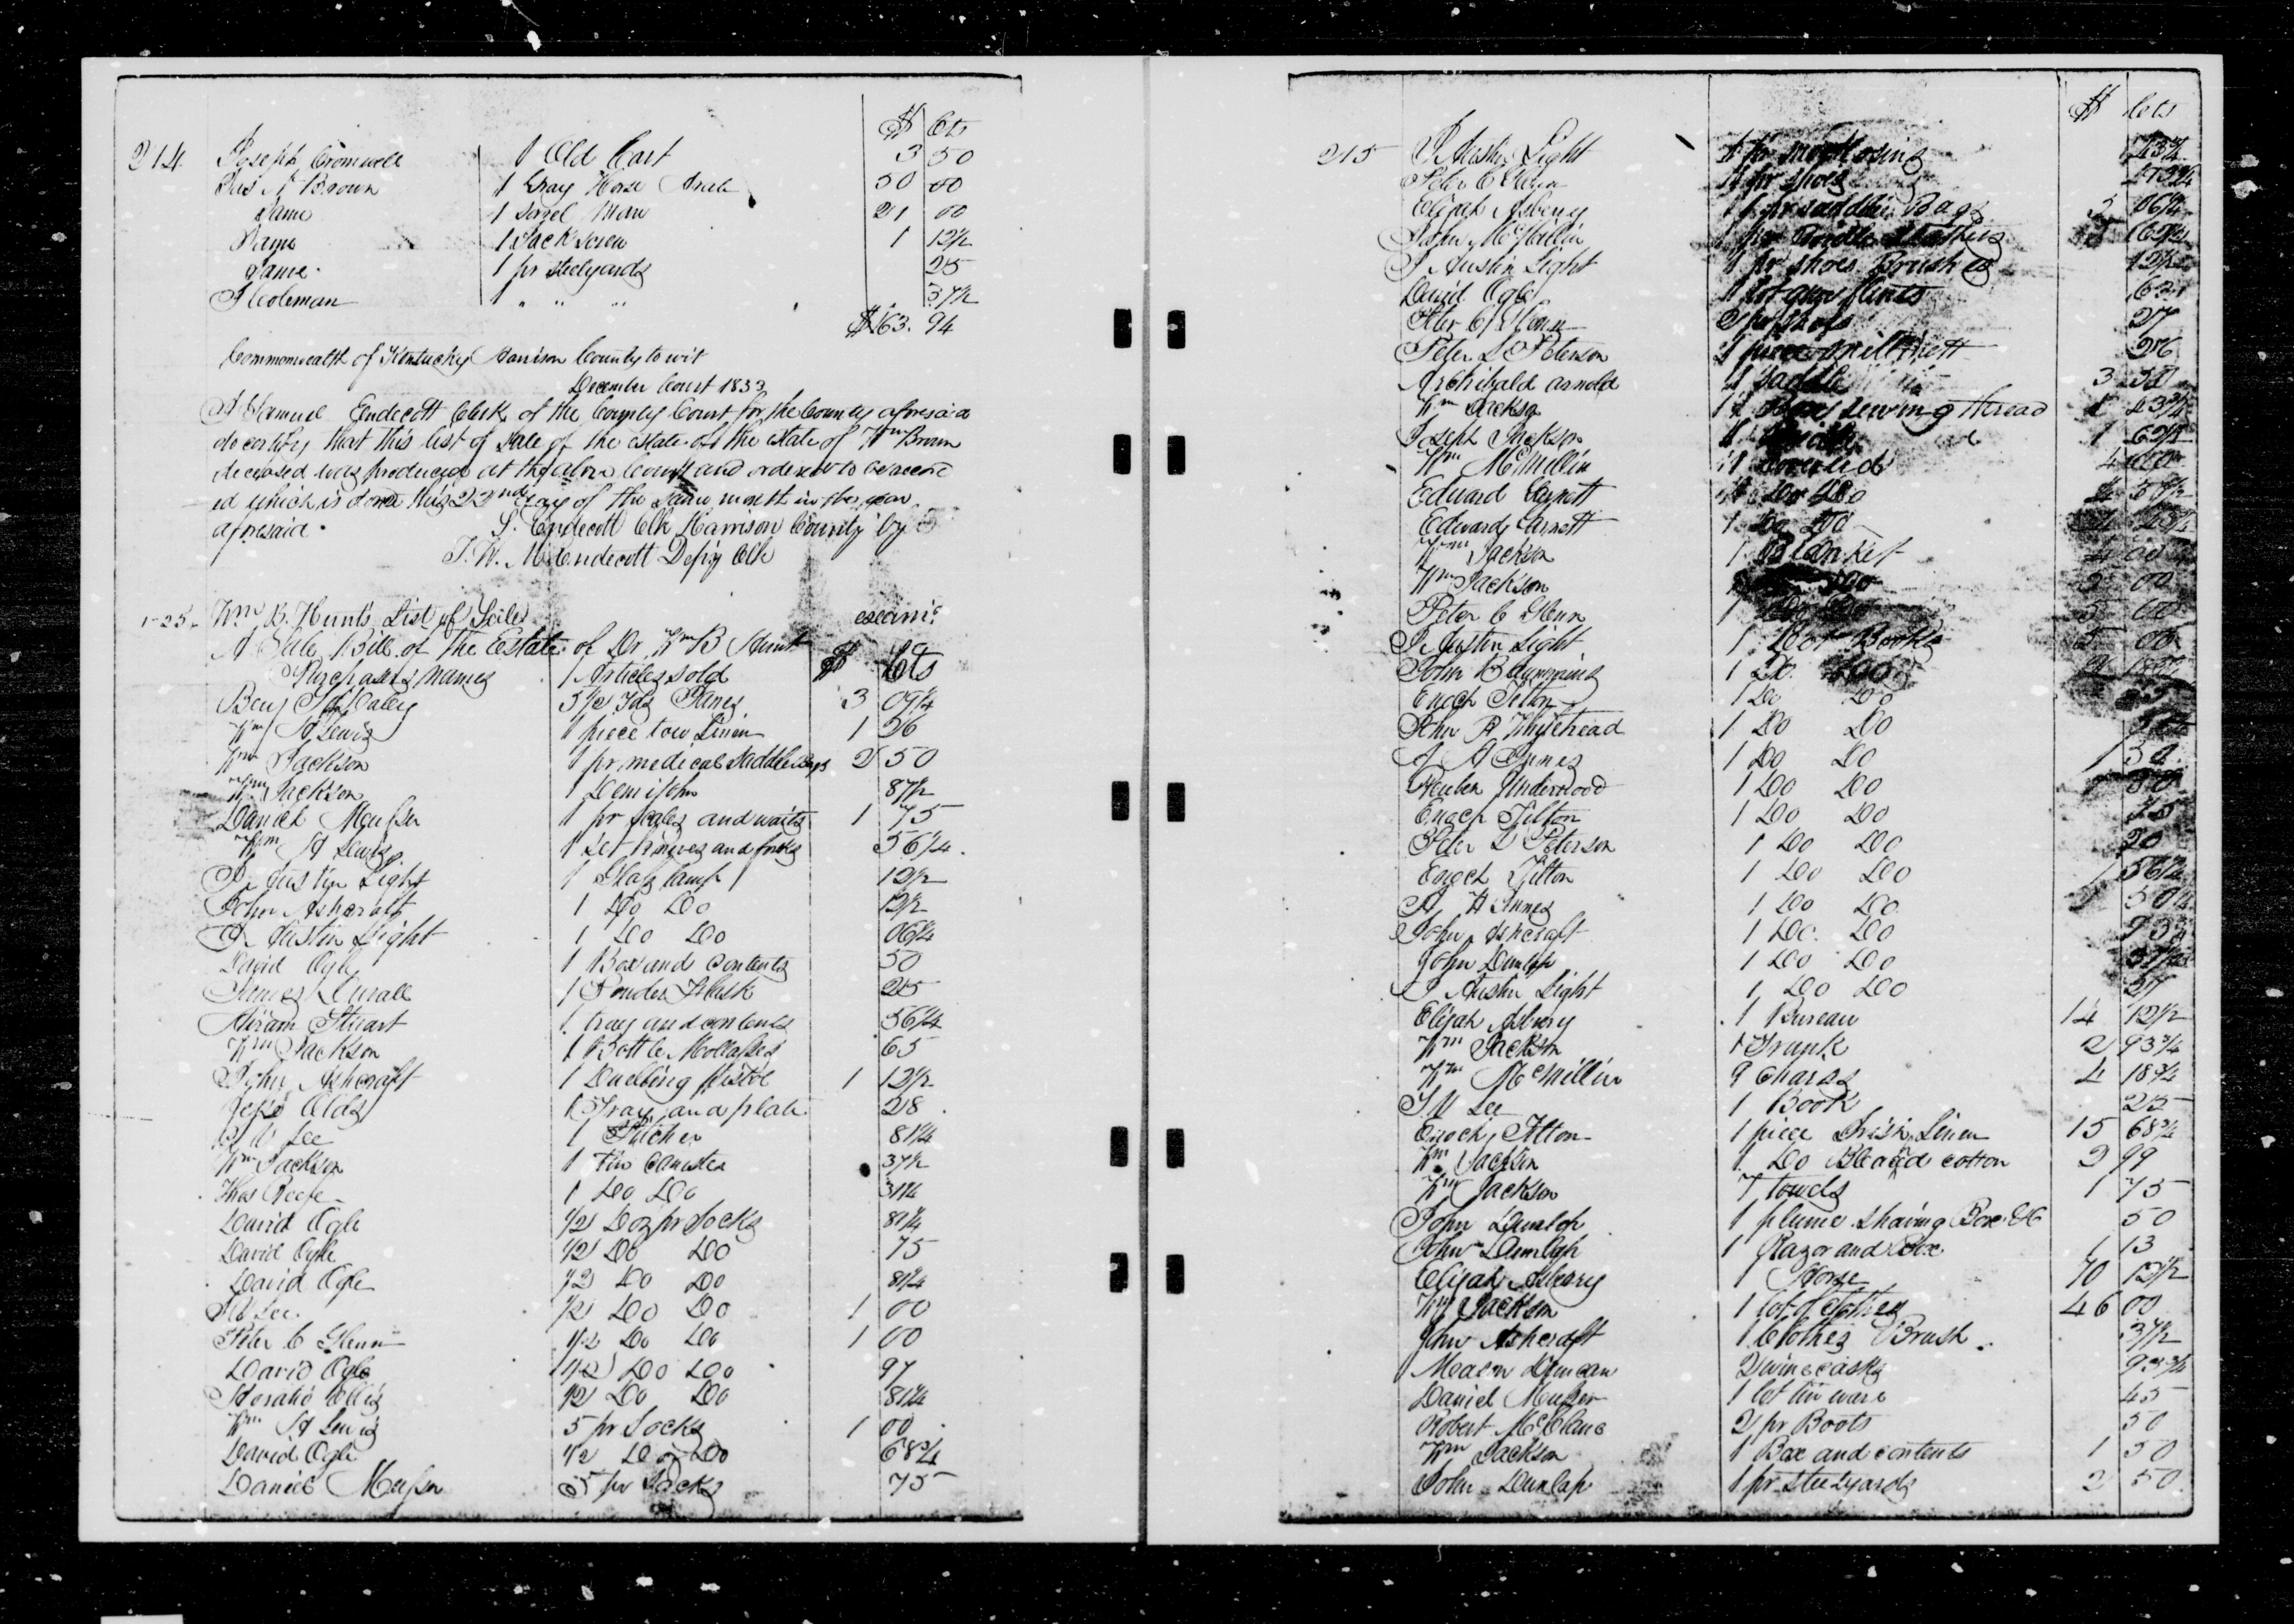 $ Cts
214 Joseph Cromwell 1 Old Cart 3 50
Jas A Brown 1 Gray Horse 50 00
Same 1 Sorrel Mare 21 00
Same 1 Jack screw 1 12½
Same 1 pr steelyards 25
J Coleman 1 " " " 37½
$163. 94
Commonwealth of Kentucky Harrison County to wit
December Court 1833
I Samuel Endecott Clerk of the County Court for the County aforesaid
do certify that this list of Sale of the estate of the estate of Wm Brown
deceased was produced at the above Court and ordered to be record
ed which is done this 22nd day of the same month in the year
aforesaid. S. Endecott Clk Harrison County by
J. W. M. Endecott Depty Clk
Wm B. Hunts List of Sales exami.d
A Sale Bill of the Estate of Dr Wm B Hunt
Purchasers names Articles sold $ Cts
Benj 3½ Yds 3 09¼
Wm H Lewis 1 piece tow Linen 1 26
Wm Jackson 1 pr medical Saddlebags 2 50
Wm Jackson 1 Demijohn 87½
Daniel Musser 1 pr scales and waits 1 75
Wm H Lewis 1 Set knives and forks 56¼
J. Austin Light 1 Glass lamp 12½
John Ashcraft 1 Do Do 12½
J. Austin Light 1 Do Do 06¼
David Ogle 1 Box and contents 50
James Durall 1 Powder Flask 25
Hiram Stuart 1 tray and contents 56¼
Wm Jackson 1 Bottle Mollasses 65
John Ashcraft 1 Duelling pistol 1 12½
Jesse Olds 1 Tray and plate 28
Lee 1 Pitcher 81¼
Wm Jackson 1 Tin Canister 37½
Thos Reese 1 Do Do 31¼
David Ogle ½ Doz pr Socks 81¼
David Ogle ½ Do Do 75
David Ogle ½ Do Do 81¼
Lee ½ Do Do 1 00
Peter C Glenn ½ Do Do 1 00
David Ogle ½ Do Do 97
Horatio Ellis ½ Do Do 81¼
Wm H Lewis 5 pr Socks 1 00
David Ogle ½ Do Do 68¾
Daniel Musser 5 pr Socks 75
$ Cts
215 J Austin Light 1 pr 43¾
Peter C Glenn 1 pr shoes
Elijah Asbery 1 pr saddle Bags 5 06¼
John McMillin 1 pr
J Austin Light 1 pr shoes Brushes 12½
David Ogle 1 lot gun flints
Peter C Glenn
Peter D Peterson 1 piece 26
Archibald Arnold 1 saddle 3
Wm Jackson sewing thread
Joseph Jackson 1 62½
Wm McMillin 1 Coverlid 4
Edward Garnett 1 Do Do
Edward Garnett 1 Do Do
Wm Jackson 1 Blanket 4 00
Wm Jackson 1 Do 00
Peter C Glenn 1
J. Austin Light 1 Lot Books
John B Cummins 1 Do Do 2
Enoch Tilton 1 Do Do
John R Whitehead 1 Do Do
A A Innes 1 Do Do 1
Reuben Underwood 1 Do Do
Enoch Tilton 1 Do Do
Peter D Peterson 1 Do Do 20
Enoch Tilton 1 Do Do 1 56¼
A A Innes 1 Do Do
John Ashcraft 1 Do Do
John Dunlap 1 Do Do 37½
J. Austin Light 1 Do Do
Elijah Asbery 1 Bureau 14 12½
Wm Jackson 1 Trunk 2 93¾
Wm McMillin 9 Chairs 4 18¾
Lee 1 Book 25
Enoch Tilton 1 piece Irish Linen 15 68¾
Wm Jackson 1 Do cotton 2 99
Wm Jackson 7 towels 1 75
John Dunlap 1 plume shaving Box &C 50
John Dunlap 1 Razor and Box 1 13
Elijah Asbery 1 Horse 70 12½
Wm Jackson 1 lot of clothes 46 00
John Ashcraft 1 Clothes Brush 37½
Mason Duncan 2 wine casks 93¾
Daniel Musser 1 lot tin ware 45
Robert McClane 2 pr Boots 50
Wm Jackson 1 Box and contents 1 50
John Dunlap 1 pr steelyards 2 50